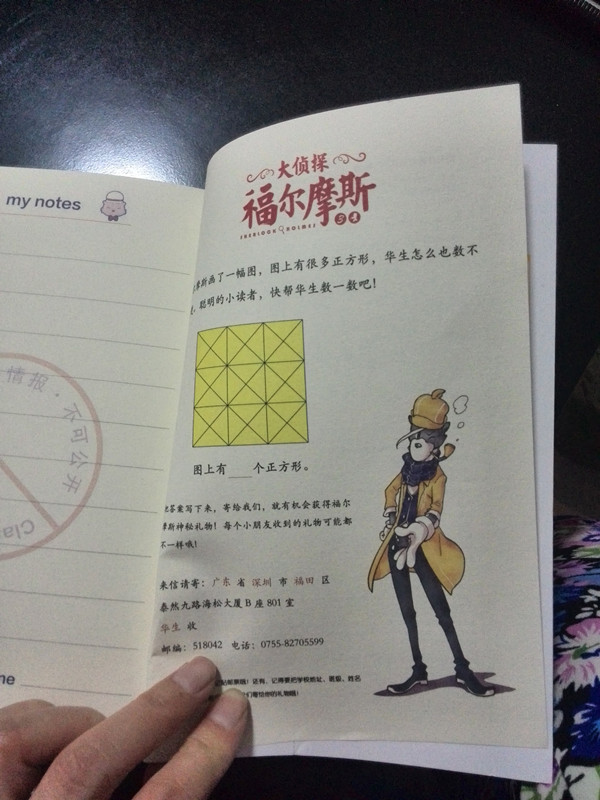 my notes
情报·不可公开
Cla
ne
大侦探
福尔摩斯
SHERLOCK HOLMES
摩斯画了一幅图，图上有很多正方形，华生怎么也数不
，聪明的小读者，快帮华生数一数吧！
图上有____个正方形。
把答案写下来，寄给我们，就有机会获得福尔
摩斯神秘礼物！每个小朋友收到的礼物可能都
不一样哦！
来信请寄：广东 省 深圳 市 福田 区
泰然九路海松大厦 B 座 801 室
华生 收
邮编：518042 电话：0755-82705599
贴邮票哦！还有，记得要把学校地址、班级、姓名
们寄给你的礼物哦！